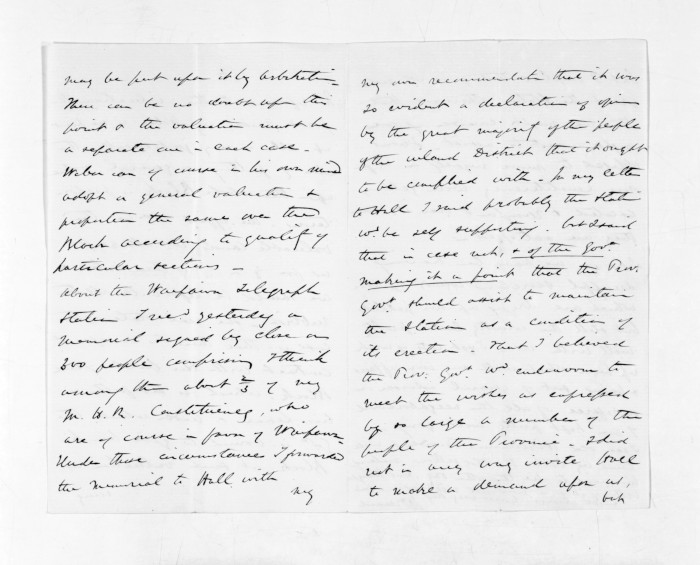 may be put upon it by Arbitration -
There can be no doubt upon this
point & the valuation must be
a separate one in each case -
Weber can of course in his own mind
adopt a general valuation &
proportion the same over the
Block according to quality of
particular sections -
About the Waipawa Telegraph
Station I recd yesterday a
Memorial signed by close on
300 people comprising I think
among them about 2/3 of my
M.H.R. Constituency, who
are of course in favor of Waipawa -
Under those circumstances I forwarded
the Memorial to Hall with
my
my own recommendation that it was
so evident a declaration of opinion
by the great majority of the people
of the inland District that it ought
to be complied with - In my letter
to Hall I said probably the Station
wd be self supporting. but I said
that in case not, & of the Govt
making it a point that the Prov.
Govt should assist to maintain
the Station as a condition of
its erection - That I believed
the Prov. Govt wd endeavour to
meet the wishes as expressed
by so large a number of the
people of the Province - I did
not in any way invite Hall
to make a demand upon us,
but